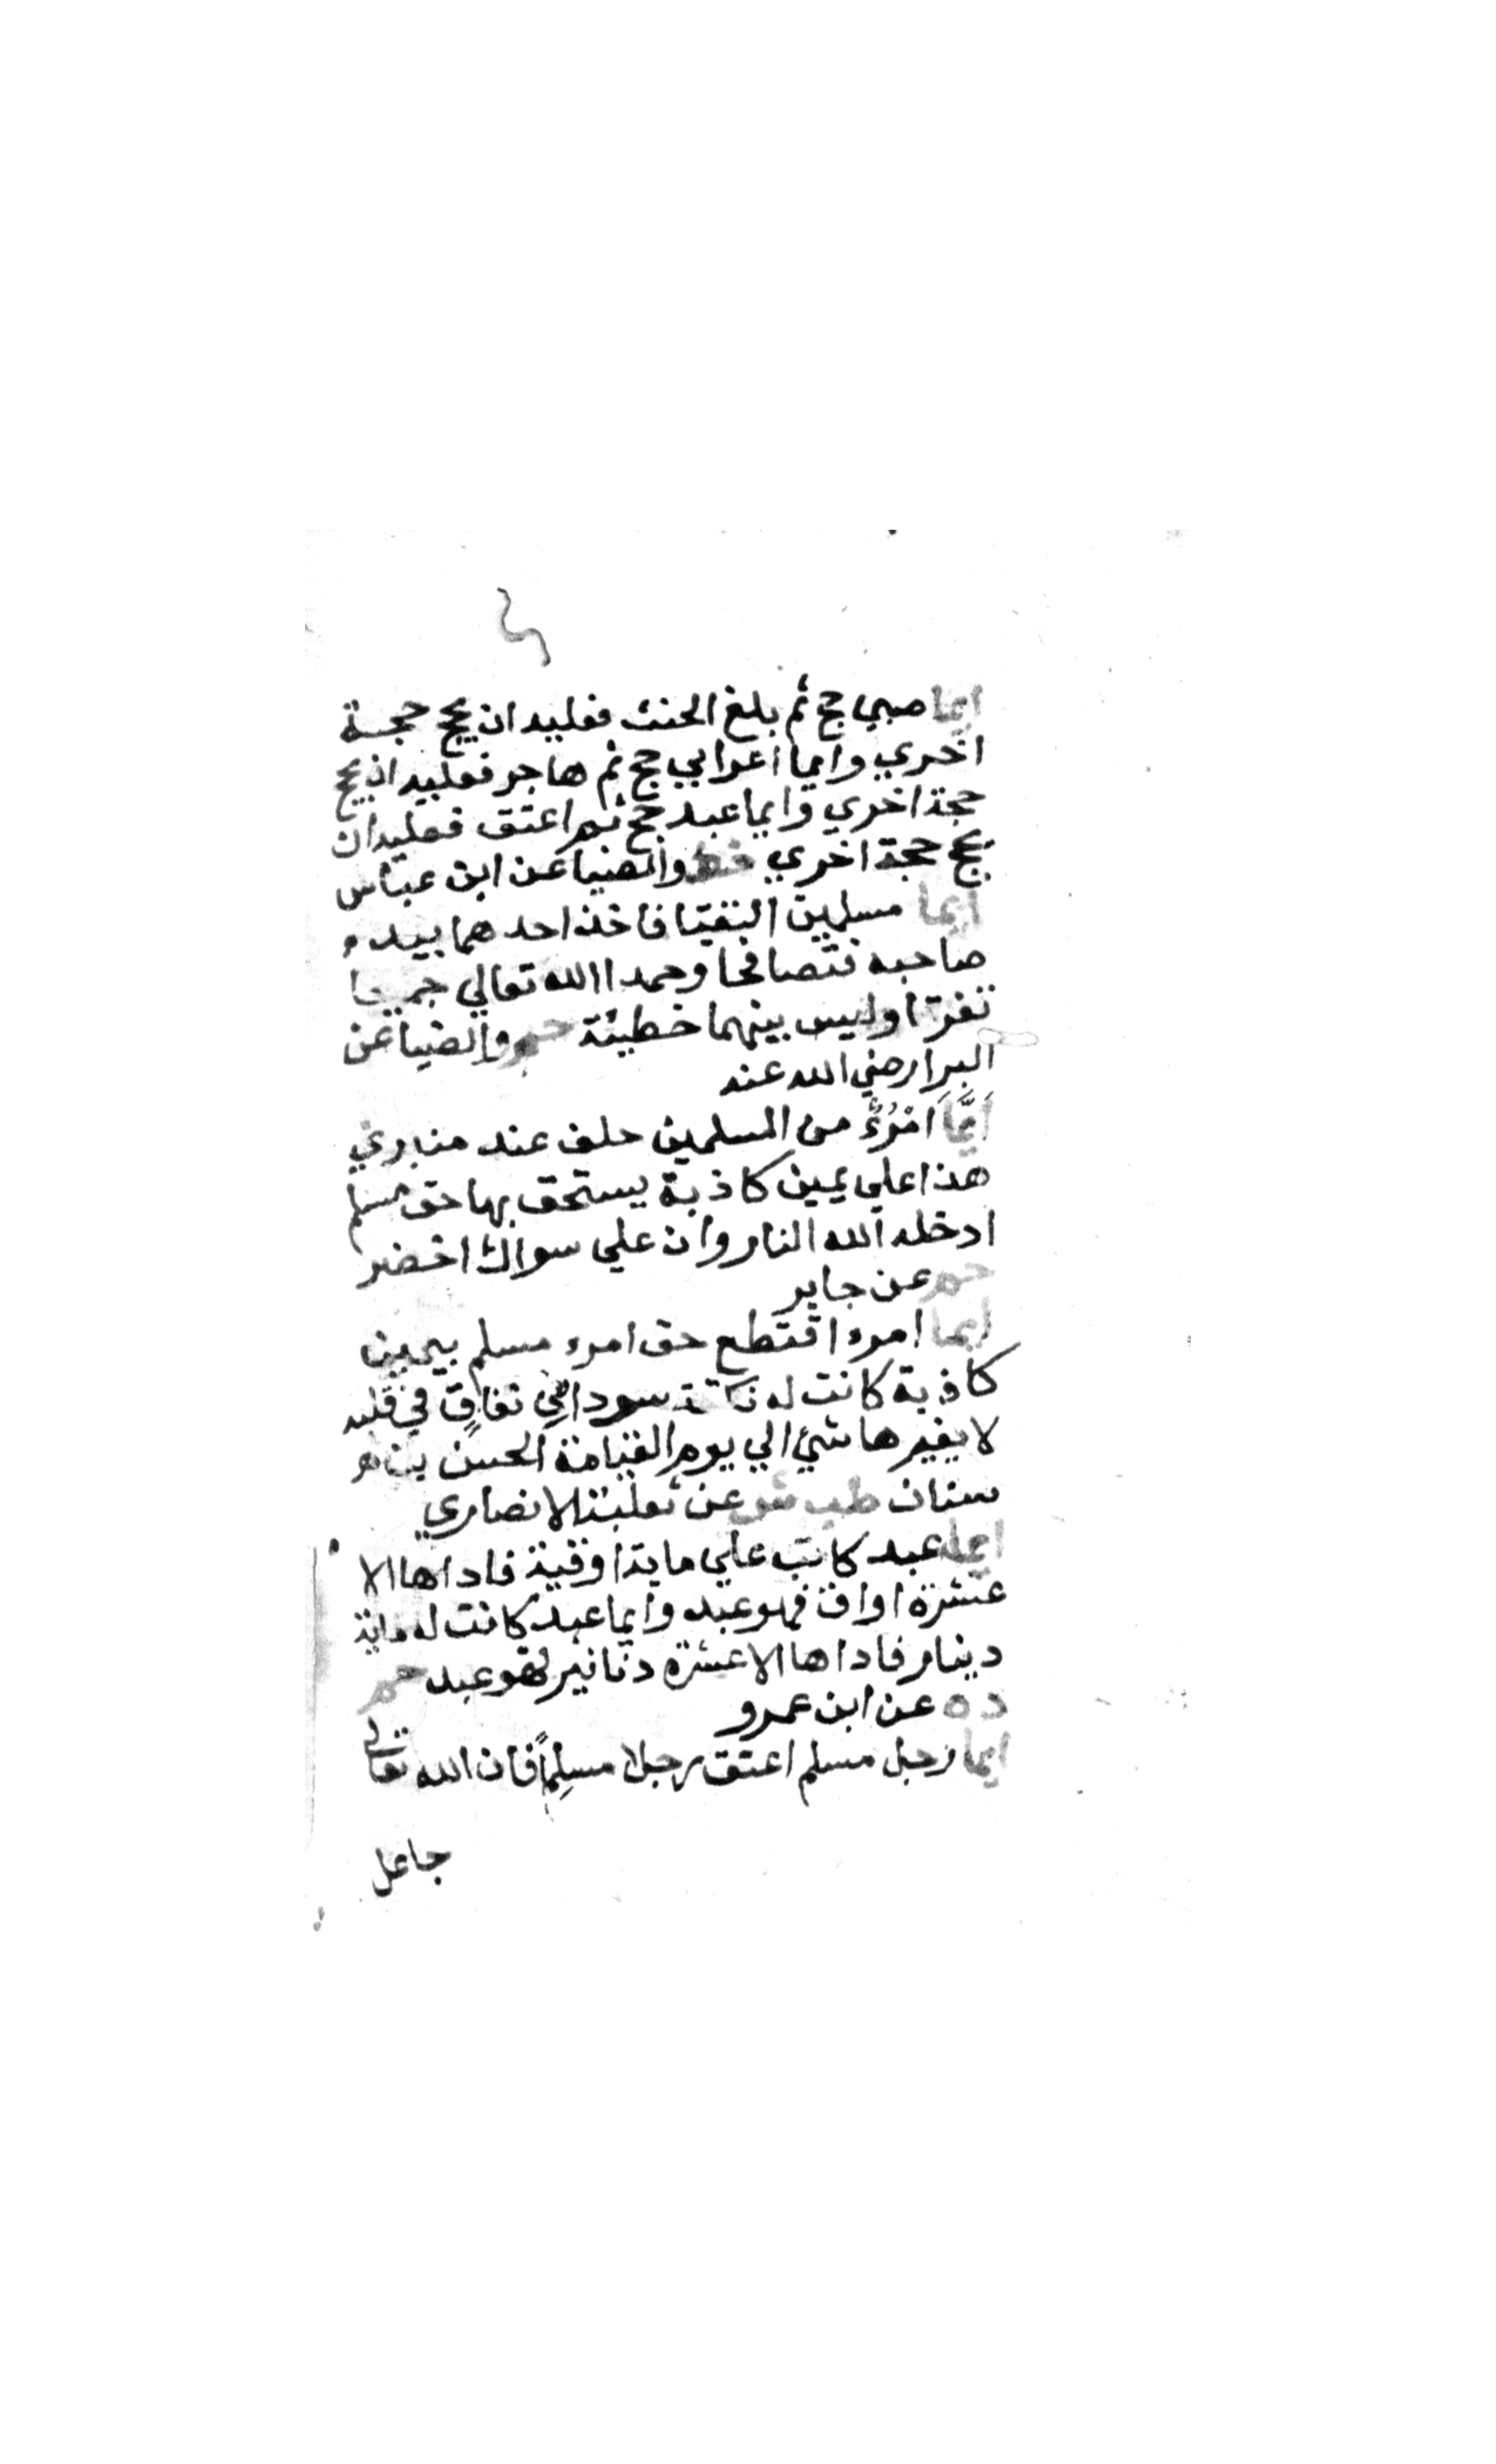 ايما صبي حج ثم بلغ الحنث فعليه ان يحج حجة
اخري وايما اعرابي حج ثم هاجر فعليه ان يحج
حجة اخري وايما عبد حج ثم اعتق فعليه ان
يحج حجة اخري خط والضيا عن ابن عباس
ايما مسلمين التقيا فاخذ احدهما بيد
صاحبه فتصافحا وحمدا الله تعالي جميعا
تفرقا وليس بينهما خطيئة حم والضيا عن
البرا رضي الله عنه
اَيُّمَا امْرُءٌ من المسلمين حلف عند منبري
هذا علي يمين كاذبة يستحق بها حق مسلم
ادخله الله النار وان علي سواك اخضر
حم عن جابر
ايما امرء اقتطع حق امرء مسلم بيمين
كاذبة كانت له نكتة سودا نفاق في قلبه
لا يغيرها شئ الي يوم القيامة الحسن بن
سنان طب عن ثعلبة الانصاري
ايما عبد كاتب علي ماية اوقية فاداها الا
عشرة اواق فهو عبد وايما عبد كانت له ماية
دينار فاداها الا عشرة دنانير فهو عبد حم
د ه عن ابن عمرو
ايما رجل مسلم اعتق رجلا مسلِماً فان الله تعالي
جاعل